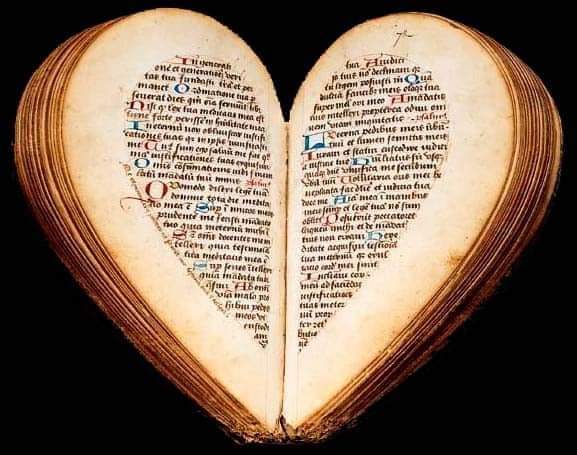 In generati
one et generationē veri
tas tua fundasti terrā et per
manet Ordinatione tua p
severat dies qm̄ oīa serviūt tibi
Nisi qd lex tua meditatio mea est
tunc forte perissem in humilitate mea
In eternū non obliviscar iustifi
cationes tuas quia in ipsis vivificasti
me Tuus sum ego salvū me fac qm̄
iustificationes tuas exquisivi
Omnis cōsumationis vidi finem
latū mandatū tuū nimis psalmus
Quomodo dilexi legē tuā
domine tota die medita
tio mea ē Sup inimicos meos
prudentē me fecisti mandato
tuo quia in eternū michi ē
Sup omēs docentes me in
tellexi quia testimonia
tua meditatio mea ē
Sup senes ītellexi
quia mādata tua
quesivi Ab omī
via mala pro
hibui pedes
meos ut
custodi
am
tua A iudicijs
tuis nō declinavi quia
tu legem posuisti michi Quā
dulcia faucibus meis eloquia tua
super mel ori meo A mandatis
tuis intellexi propterea odivi om
nem viam iniquitatis psalmus
Lucerna pedibus meis verbū
tuū et lumen semitis meis
Iuravi et statui custodire iudici
a iustitie tue Humiliatus sū usq
quaq dn̄e vivifica me secundum
verbū tuū Volūtaria oris mei be
neplacita fac dn̄e et iudicia tua
doce me Aīa mea ī manibus
meis semp et legē tuā nō sum
oblitus Posuerūt peccatores
laqueū michi et de mādatis
tuis non erravi Here
ditate acquisivi testimonia
tua in eternū quia exul
tatio cordis mei sunt
Inclinavi cor
meū ad faciēdas
iustificationes
tuas in eter
nū prop
ter retri
butio
nē